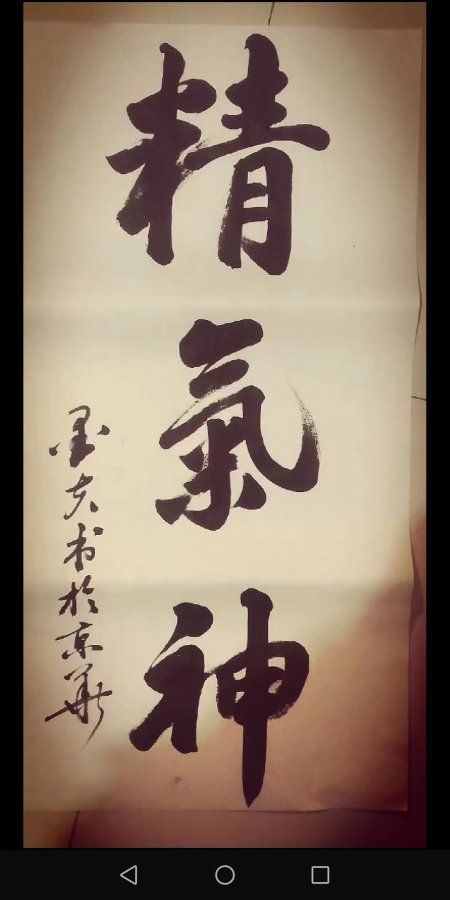 精氣神
墨夫书於京华